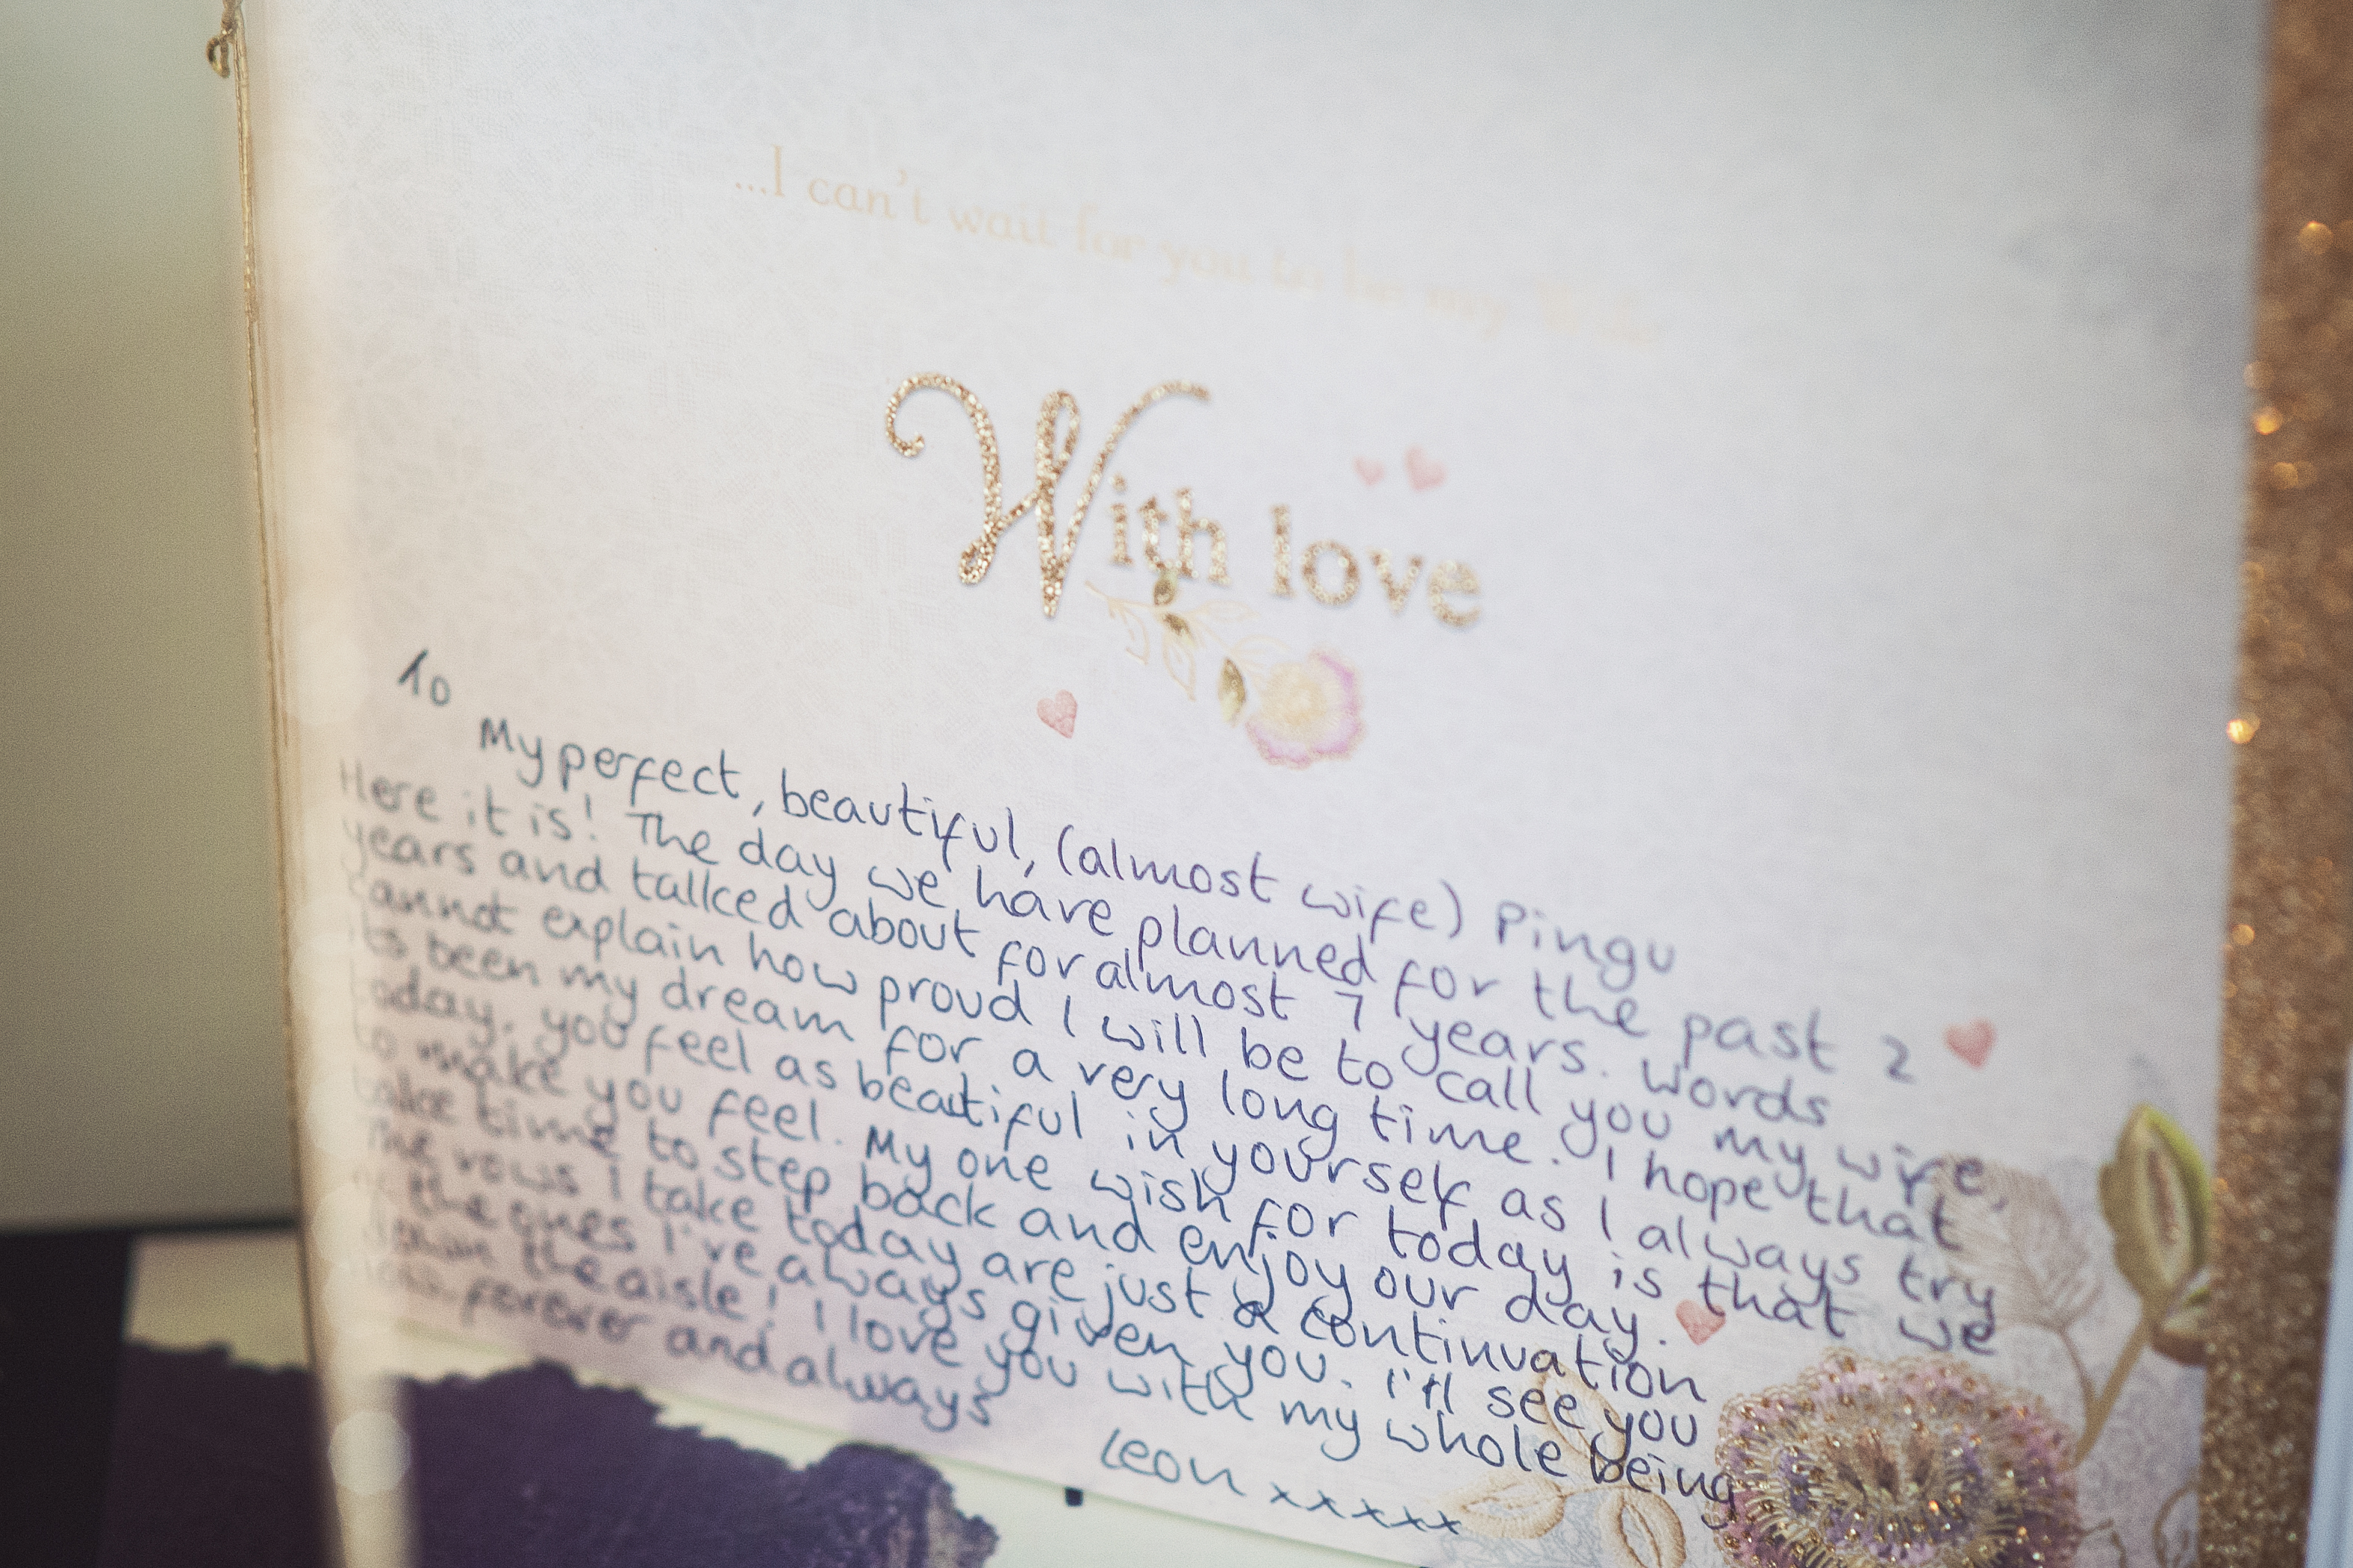 ...I can't wait for you to be my Wife
With love
To
My perfect, beautiful, (almost wife) Pingu
Here it is! The day we have planned for the past 2
years and talked about for almost 7 years. Words
cannot explain how proud I will be to call you my wife,
its been my dream for a very long time. I hope that
today, you feel as beautiful in yourself as I always try
to make you feel. My one wish for today is that we
take time to step back and enjoy our day.
The vows I take today are just a continuation
the ones I've always given you. I'll see you
down the aisle! I love you with my whole being
forever and always
Leon xxxxx